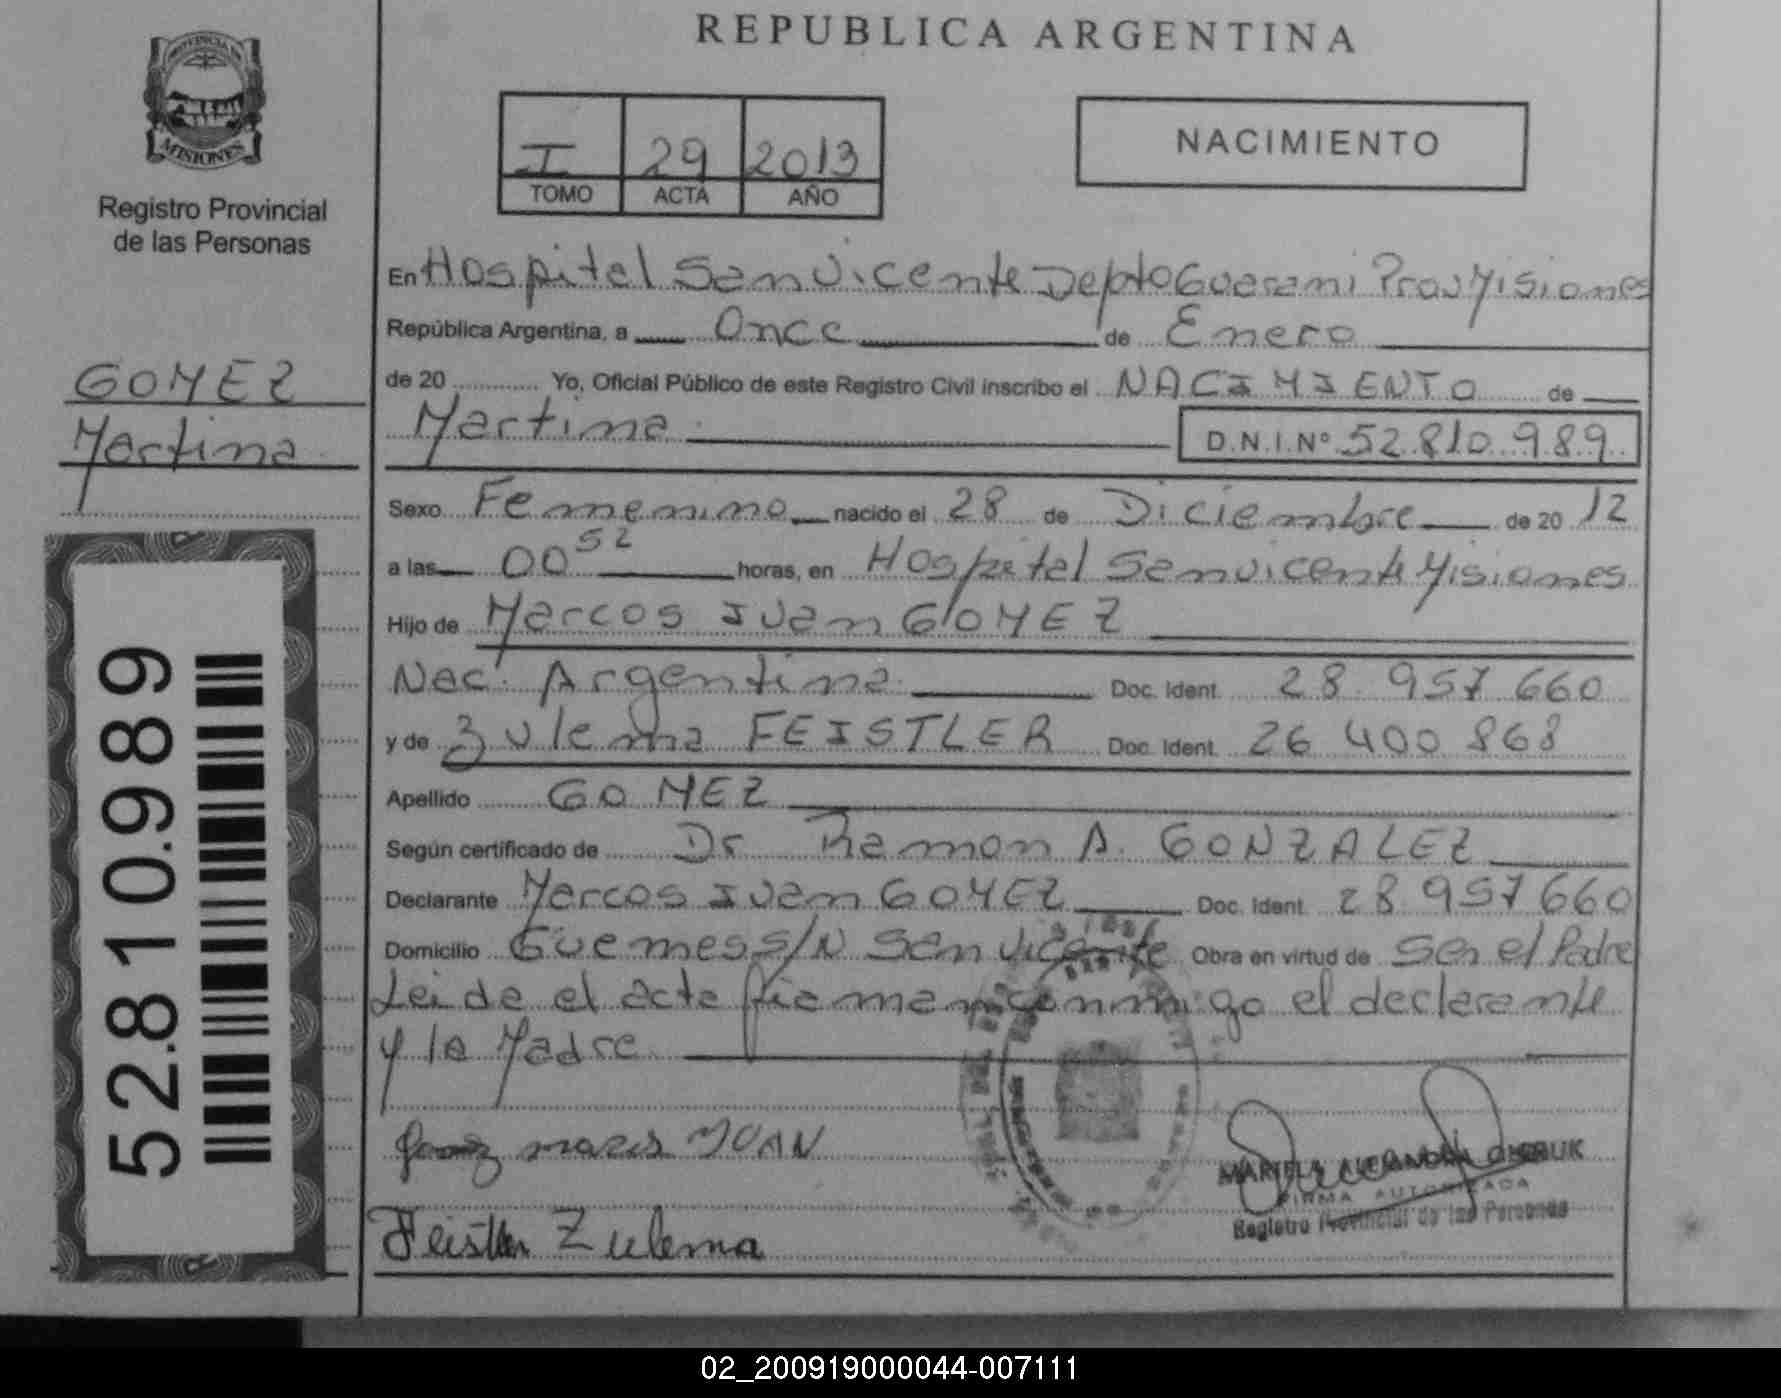 REPUBLICA ARGENTINA
PROVINCIA DE
MISIONES
Registro Provincial
de las Personas
I 29 2013
TOMO ACTA AÑO
NACIMIENTO
GOMEZ
Martina
52.810.989
En Hospital San Vicente Depto Guarani Prov Misiones
República Argentina, a Once de Enero
de 20 Yo, Oficial Público de este Registro Civil inscribo el NACIMIENTO de
Martina D.N.I.Nº 52.810.989
Sexo Femenino nacido el 28 de Diciembre de 20 12
a las 00 52 horas, en Hospital San Vicente Misiones
Hijo de Marcos Juan GOMEZ
Nac. Argentina Doc. Ident. 28.957.660
y de Zulema FEISTLER Doc. Ident. 26 400 868
Apellido GOMEZ
Según certificado de Dr Ramon A. GONZALEZ
Declarante Marcos Juan GOMEZ Doc. Ident. 28 957 660
Domicilio Guemes S/N San Vicente Obra en virtud de Ser el Padre
Leida el acta firman conmigo el declarante
y la Madre
JUAN
Feistler Zulema
FIRMA AUTORIZADA
Registro Provincial de las Personas
02_200919000044-007111